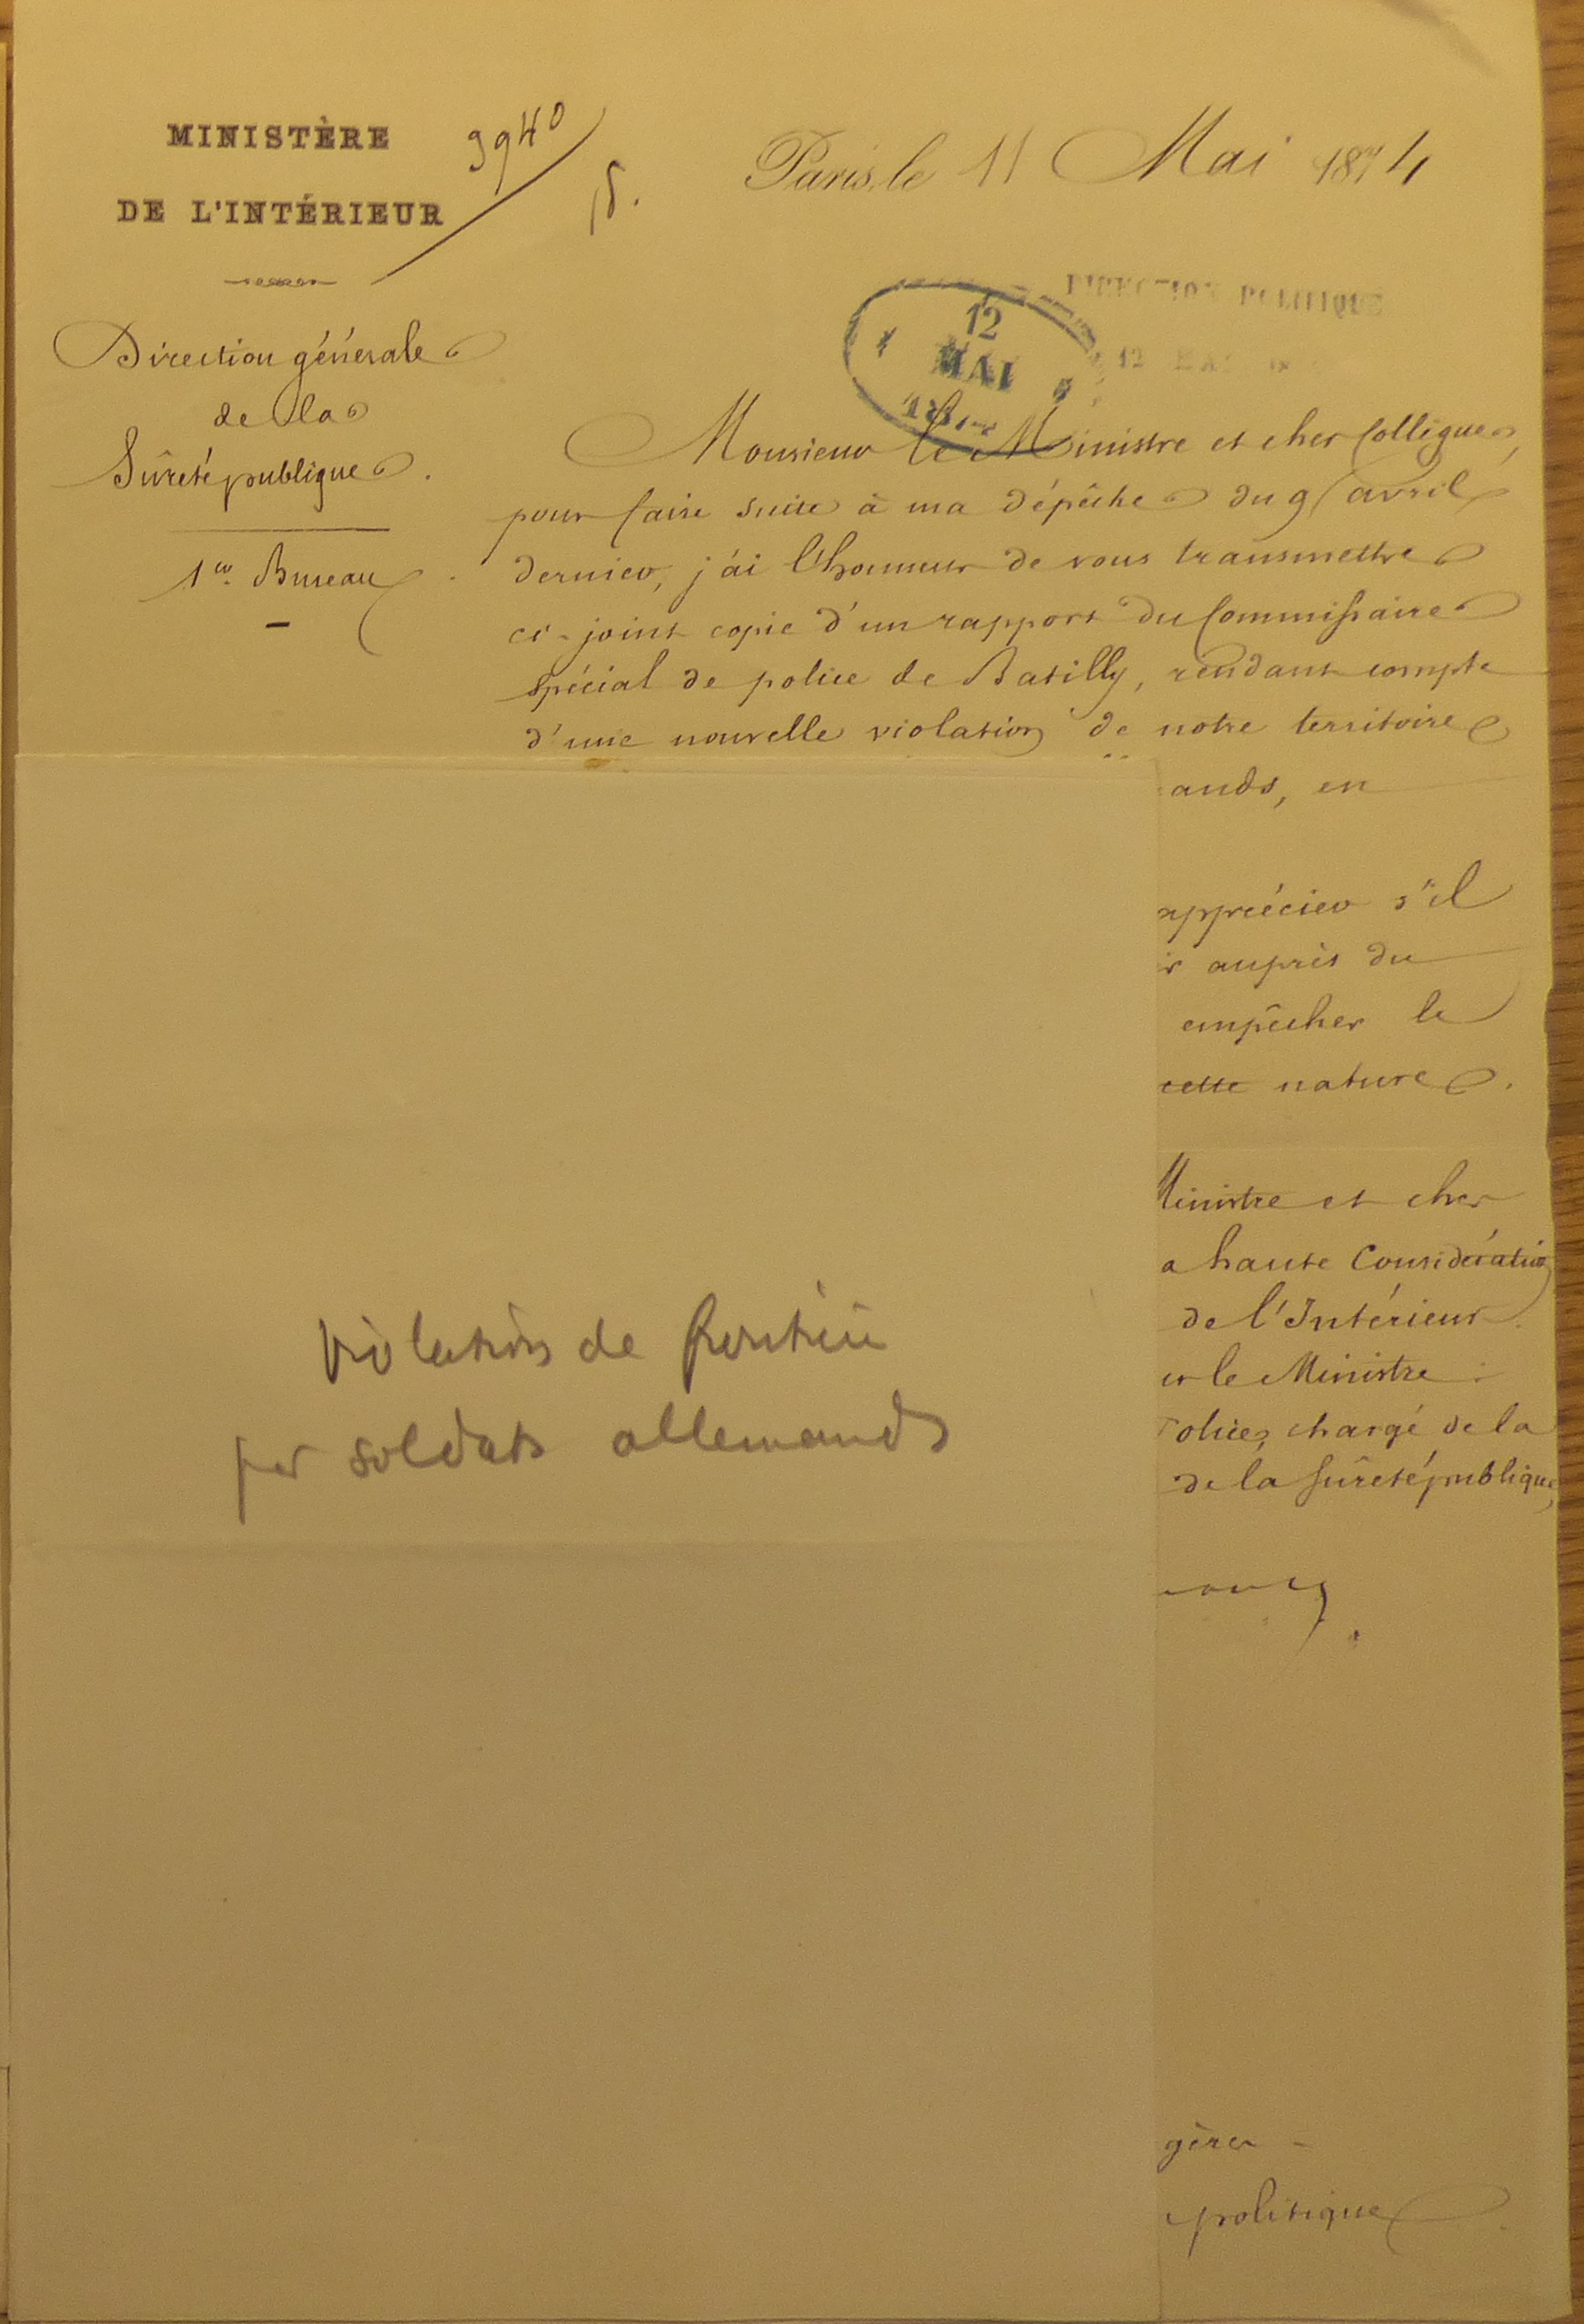 MINISTÈRE
DE L'INTÉRIEUR
3940
Direction générale
de la
Sûreté publique.
1er Bureau
Paris, le 11 Mai 1874
DIRECTION POLITIQUE
12 MAI
12
MAI
Monsieur le Ministre et cher Collègue,
pour faire suite à ma dépêche du 9 avril
dernier, j'ai l'honneur de vous transmettre
ci-joint copie d'un rapport du Commissaire
spécial de police de Batilly, rendant compte
d'une nouvelle violation de notre territoire
ands, en
apprécier s'il
r auprès du
empêcher le
cette nature.
Ministre et cher
a haute Considération
de l'Intérieur
le Ministre :
olice, chargé de la
de la Sûreté publique,
gères
politique
Violation de frontière
par soldats allemands